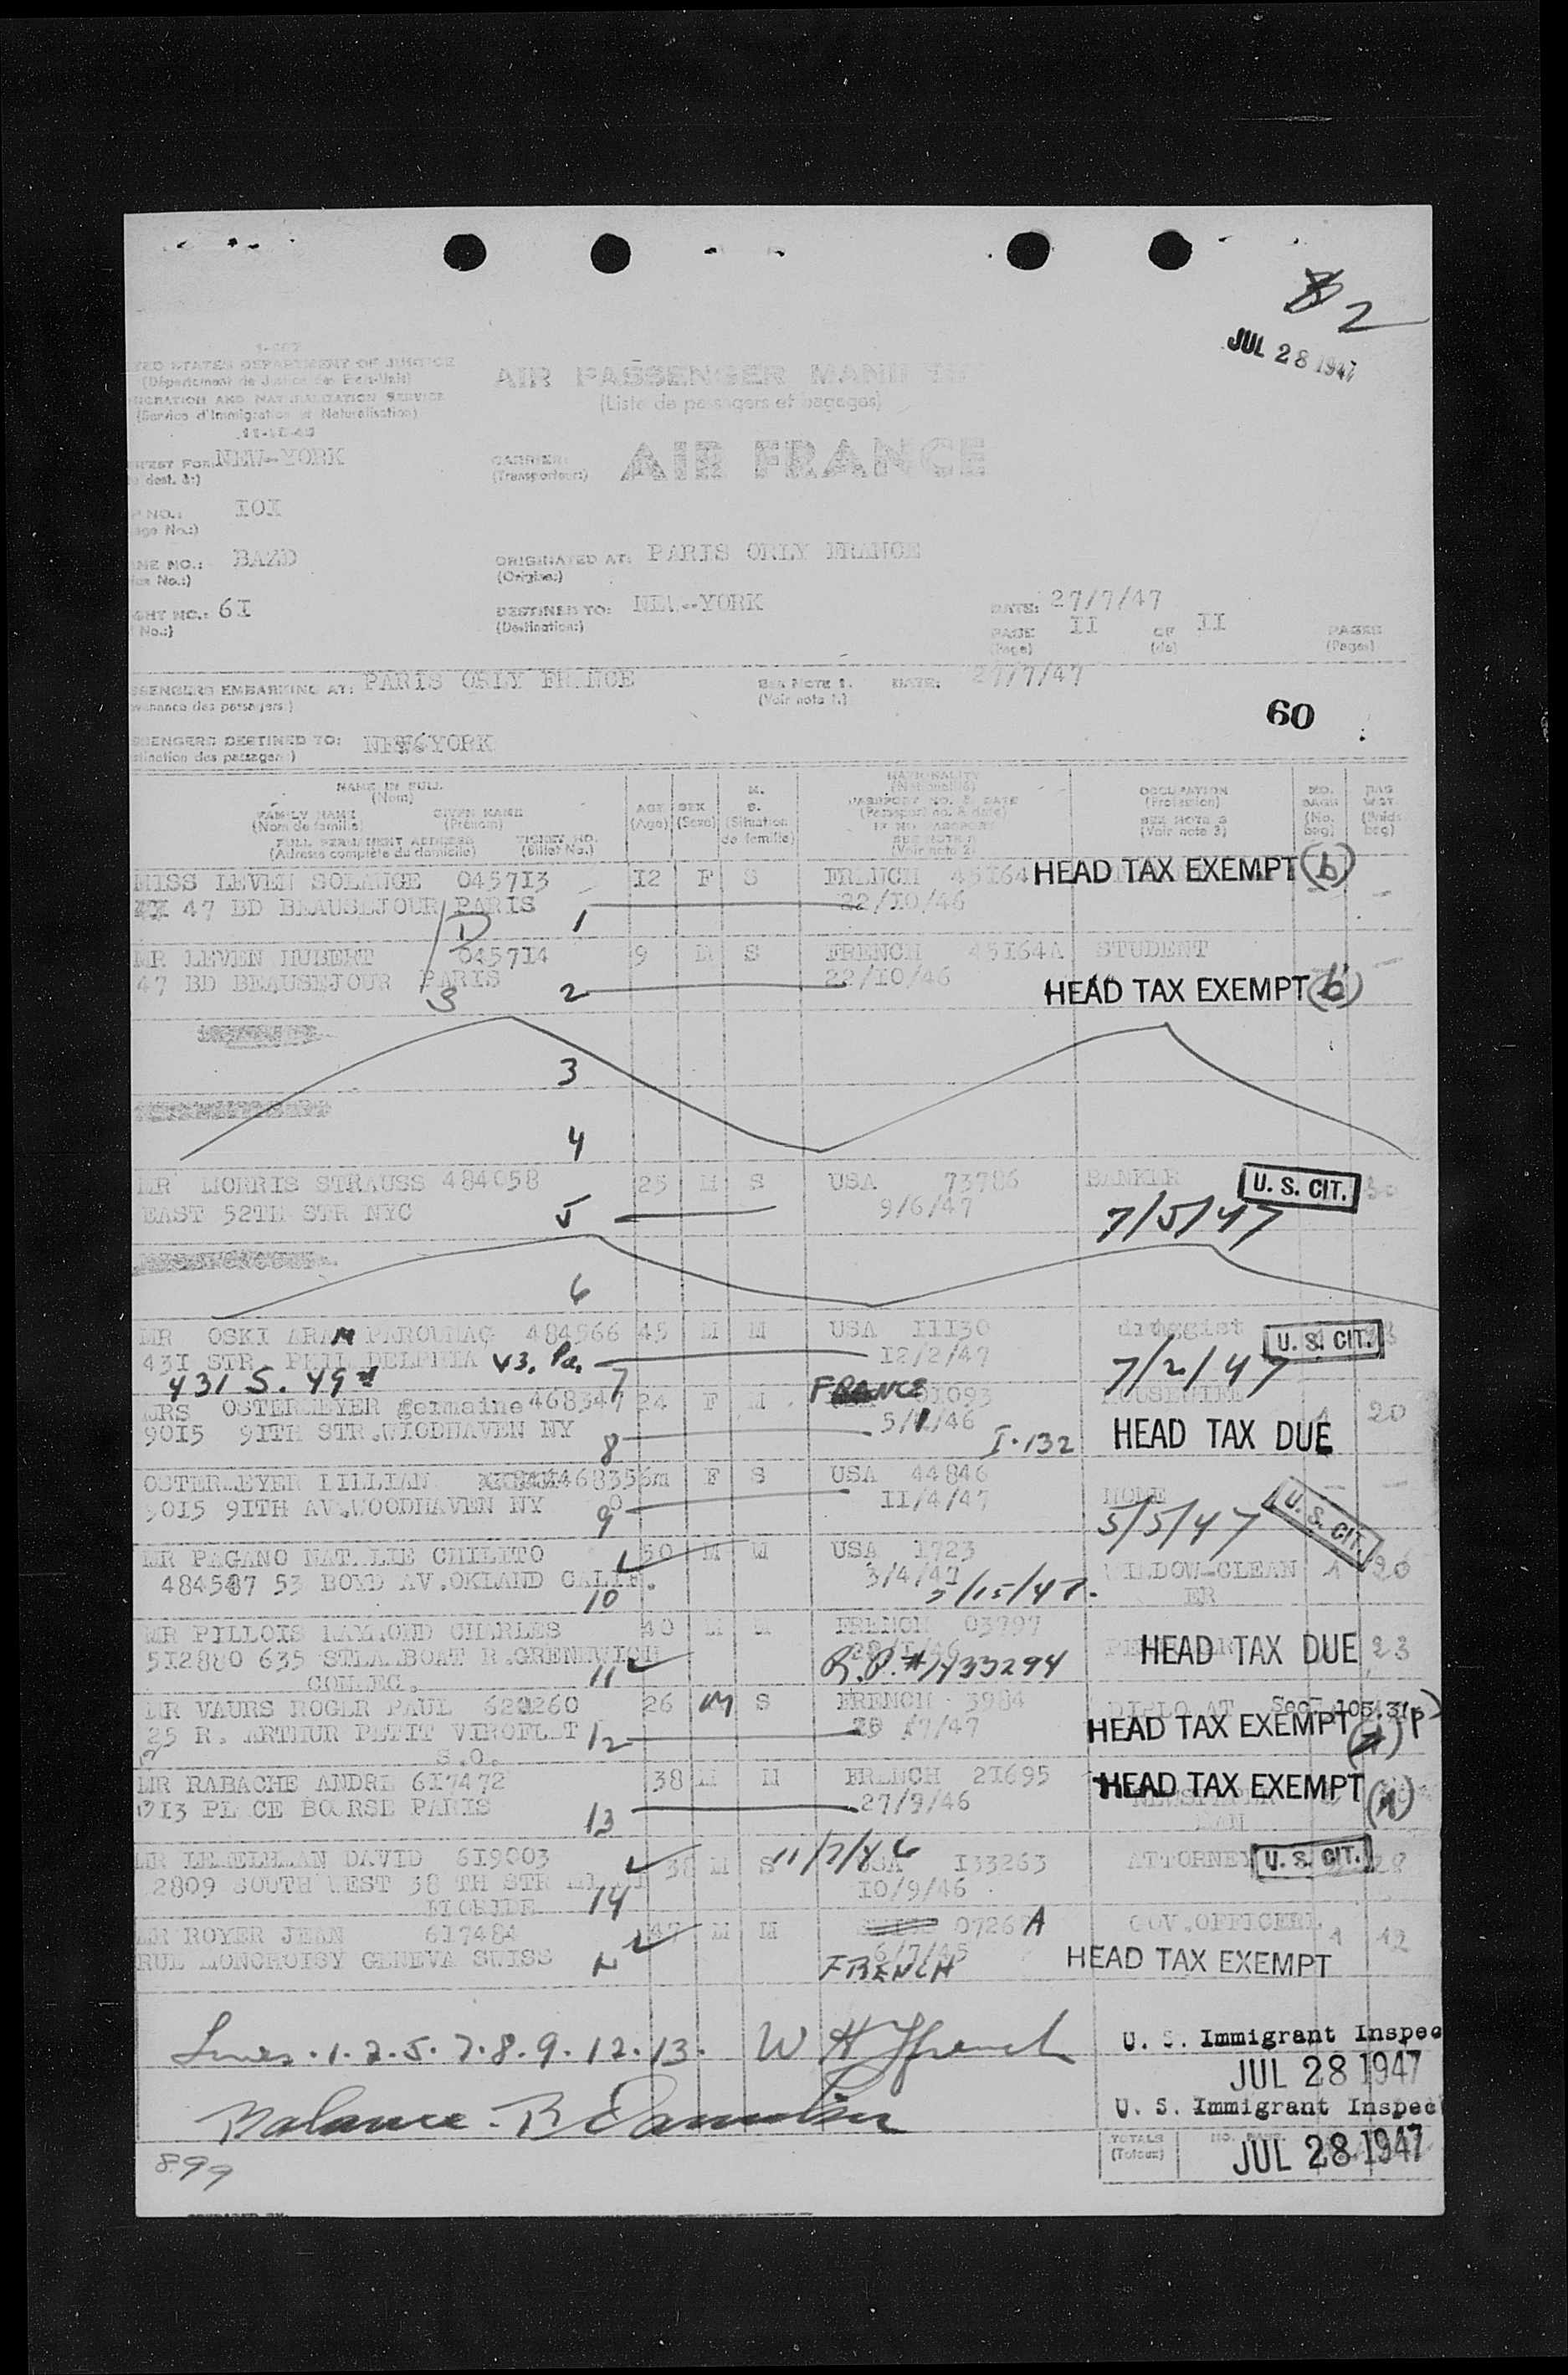 2
JUL 28 1947
I-407
STATES DEPARTMENT OF JUSTICE
(Département de Justice des Etats-Unis)
AIR PASSENGER MANIFEST
IMMIGRATION AND NATURALIZATION SERVICE
(Liste de passagers et bagages)
(Service d'Immigration et Naturalisation)
NEW-YORK
CARRIER:
(Transporteur:)
AIR FRANCE
dest. à:)
NO.: IOI
BAZD
ORIGINATED AT: PARIS ORLY FRANCE
(Origine:)
NO.: 6I
DESTINED TO: NEW-YORK
DATE: 27/7/47
No.:)
(Destination:)
PAGE II OF II PAGES
(Page) (de) (Pages)
PASSENGERS EMBARKING AT: PARIS ORLY FRANCE SEE NOTE 1. DATE: 27/7/47
(Provenance des passagers:) (Voir nota 1.)
60
PASSENGERS DESTINED TO: NEW YORK
(Destination des passagers:)
NAME IN FULL
(Nom)
FAMILY NAME GIVEN NAME
(Nom de famille) (Prénom)
FULL PERMANENT ADDRESS TICKET NO.
(Adresse complète du domicile) (Billet No.)
AGE
(Age)
SEX
(Sexe)
M.
S.
(Situation
de famille)
NATIONALITY
(Nationalité)
PASSPORT NO. & DATE
(Passeport no. & date)
IF NO PASSPORT
SEE NOTE 2
(Voir nota 2)
OCCUPATION
(Profession)
SEE NOTE 3
(Voir nota 3)
NO.
BAGS
(No.
bag)
BAG
WGT.
(Poids
bag)
MISS LEVEN SOLANGE 045713 12 F S FRENCH 45164 HEAD TAX EXEMPT (b)
47 BD BEAUSEJOUR PARIS 1 22/10/46
D
MR LEVEN HUBERT 045714 9 M S FRENCH 45I64A STUDENT
47 BD BEAUSEJOUR PARIS 2 22/10/46 HEAD TAX EXEMPT (b)
S
3
4
MR MORRIS STRAUSS 484058 25 M S USA 73786 BANKER U. S. CIT. 30
EAST 52TH STR NYC 5 9/6/47 7/5/47
6
MR OSKI ARAM PAROUNAG 484566 45 M M USA III30 druggist U. S. CIT.
43I STR PHILADELPHIA V3, Pa, 7 12/2/47 7/2/47
431 S. 49th
MRS OSTERMEYER germaine 468347 24 F M FRANCE 01093 HOUSEWIFE 1 20
9OI5 9ITH STR.WOODHAVEN NY 8 5/ /46 I-132 HEAD TAX DUE
OSTERMEYER LILLIAN 468356 m F S USA 44846 NONE
9OI5 9ITH AV.WOODHAVEN NY 9 II/4/47 5/5/47 U. S. CIT.
MR PAGANO NATALIE CHILITO 50 M M USA I723 WINDOW-CLEAN 1 20
484587 53 BOYD AV.OKLAND CALIF. 10 3/4/47 5/15/47. ER
MR PILLOIS RAYMOND CHARLES 40 M M FRENCH 03797 HEAD TAX DUE 23
5I2880 635 STEAMBOAT R.GRENEWICH R.P.#1433294
CONNEC. 11
MR VAURS ROGER PAUL 620260 26 M S FRENCH 3984 DIPLOMAT Sec 105.3(p)
25 R. ARTHUR PETIT VIROFLET 12 /7/47 HEAD TAX EXEMPT p
S.O.
MR RABACHE ANDRE 617472 38 M M FRENCH 2I695 HEAD TAX EXEMPT
I3 PLACE BOURSE PARIS 13 27/9/46 NEWSPAPER
MAN
MR DAVID 6I9003 38 M S 11/7/46 USA I33263 ATTORNEY U. S. CIT. 28
2809 SOUTH WEST 38 TH STR MIAMI 10/9/46
FLORIDE 14
MR ROYER JEAN 617484 47 M M 0726 A GOV.OFFICER 1 12
RUE MONCHOISY GENEVA SUISS 6/7/45 FRENCH HEAD TAX EXEMPT
Lines.1.2.5.7.8.9.12.13. W H French U. S. Immigrant Inspec
JUL 28 1947
Balance - U. S. Immigrant Inspec
TOTALS
(Totaux)
JUL 28 1947
899